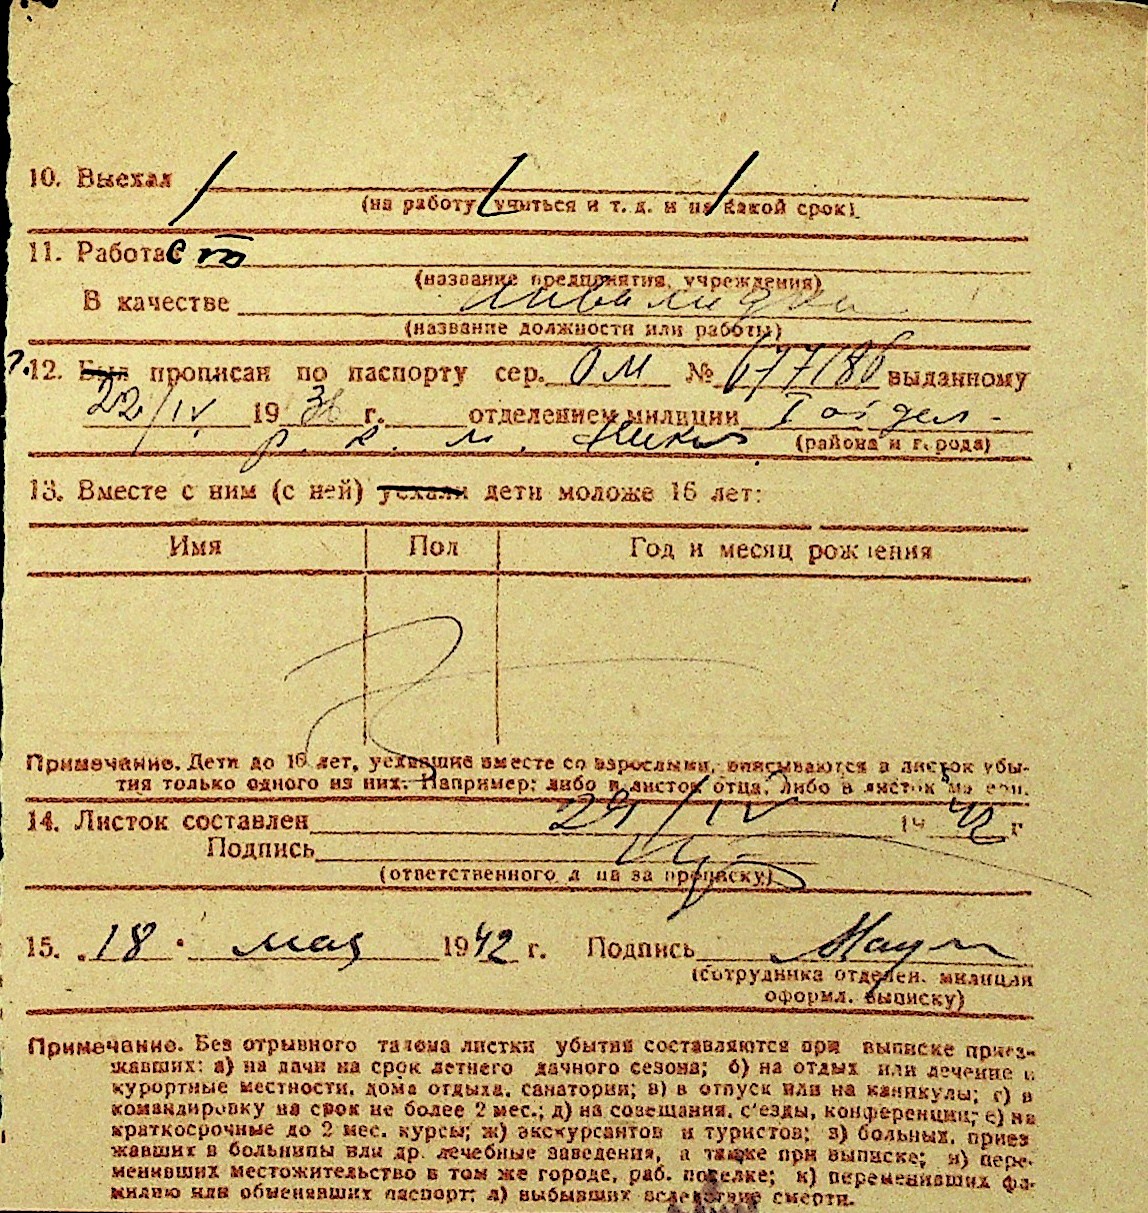 10. Выехал
(на работу, учиться и т. д. и на какой срок)
11. Работает
(название предприятия, учреждения)
В качестве
(название должности или работы)
?.12. Был прописан по паспорту сер. ОМ № 677186 выданному
22/IV 1936 г. отделением милиции I отдел.
р. к. м. (района и города)
13. Вместе с ним (с ней) уехали дети моложе 16 лет:
Имя Пол Год и месяц рождения
Примечание. Дети до 16 лет, уехавшие вместе со взрослыми, вписываются в листок убы-
тия только одного из них. Например: либо в листок отца, либо в листок ма ери.
14. Листок составлен 29/IV 1942 г
Подпись
(ответственного л ца за прописку)
15. 18 • мая 1942 г. Подпись
(сотрудника отделен. милиции
оформл. выписку)
Примечание. Без отрывного талона листки убытия составляются при выписке приез-
жавших: а) на дачи на срок летнего дачного сезона; б) на отдых или лечение в
курортные местности, дома отдыха, санатории; в) в отпуск или на каникулы; г) в
командировку на срок не более 2 мес.; д) на совещания, с'езды, конференции; е) на
краткосрочные до 2 мес. курсы; ж) экскурсантов и туристов; з) больных, приез
жавших в больницы или др. лечебные заведения, а также при выписке; и) пере-
менивших местожительство в том же городе, раб. поселке; к) переменивших фа-
милию или обменявших паспорт; л) выбывших вследствие смерти.